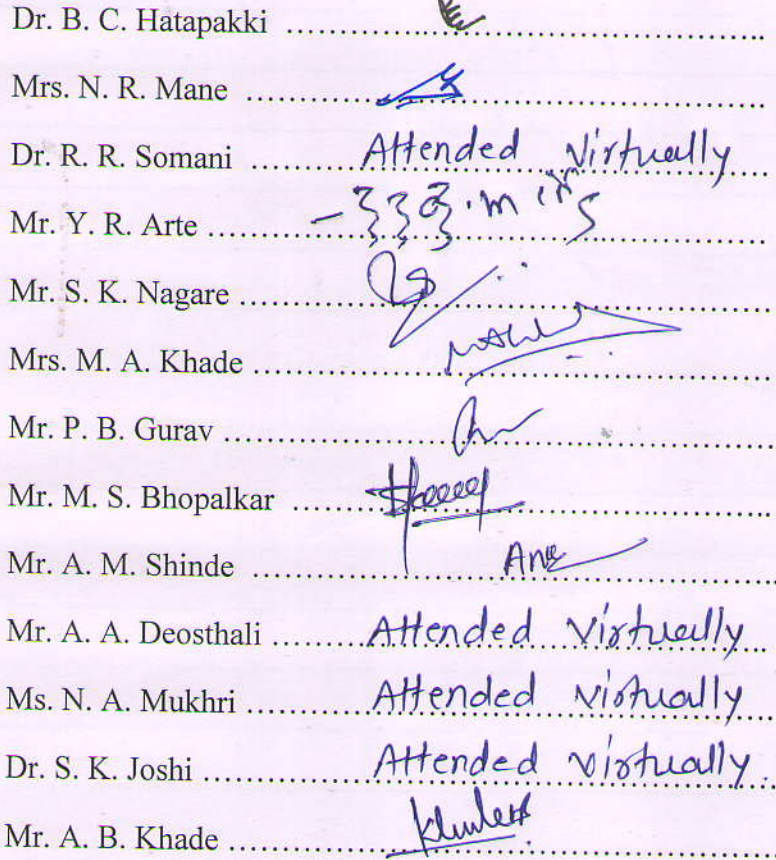 Dr. B. C. Hatapakki ................................................
Mrs. N. R. Mane ................................................
Dr. R. R. Somani ............ Attended Virtually ....
Mr. Y. R. Arte ................................................
Mr. S. K. Nagare ................................................
Mrs. M. A. Khade ................................................
Mr. P. B. Gurav ................................................
Mr. M. S. Bhopalkar ................................................
Mr. A. M. Shinde ................................................
Mr. A. A. Deosthali ............ Attended Virtually ...
Ms. N. A. Mukhri ............ Attended Virtually ...
Dr. S. K. Joshi ............ Attended Virtually ...
Mr. A. B. Khade ................................................